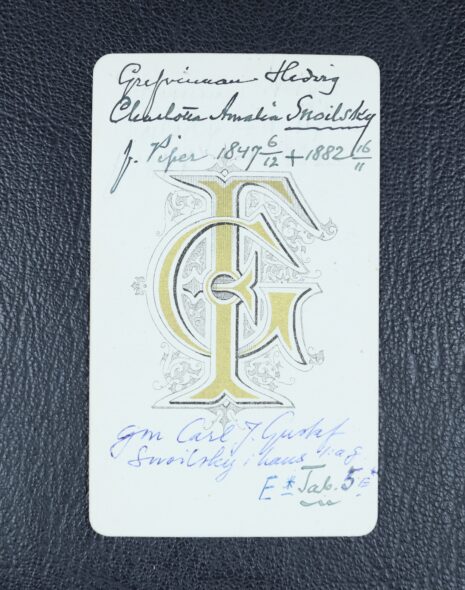 Grefvinnan Hedvig
Charlotta Amalia Snoilsky
f. Piper 1847 6/12 + 1882 16/11
GF
gm Carl J. Gustaf
Snoilsky i hans 1:a g.
E* Tab. 5